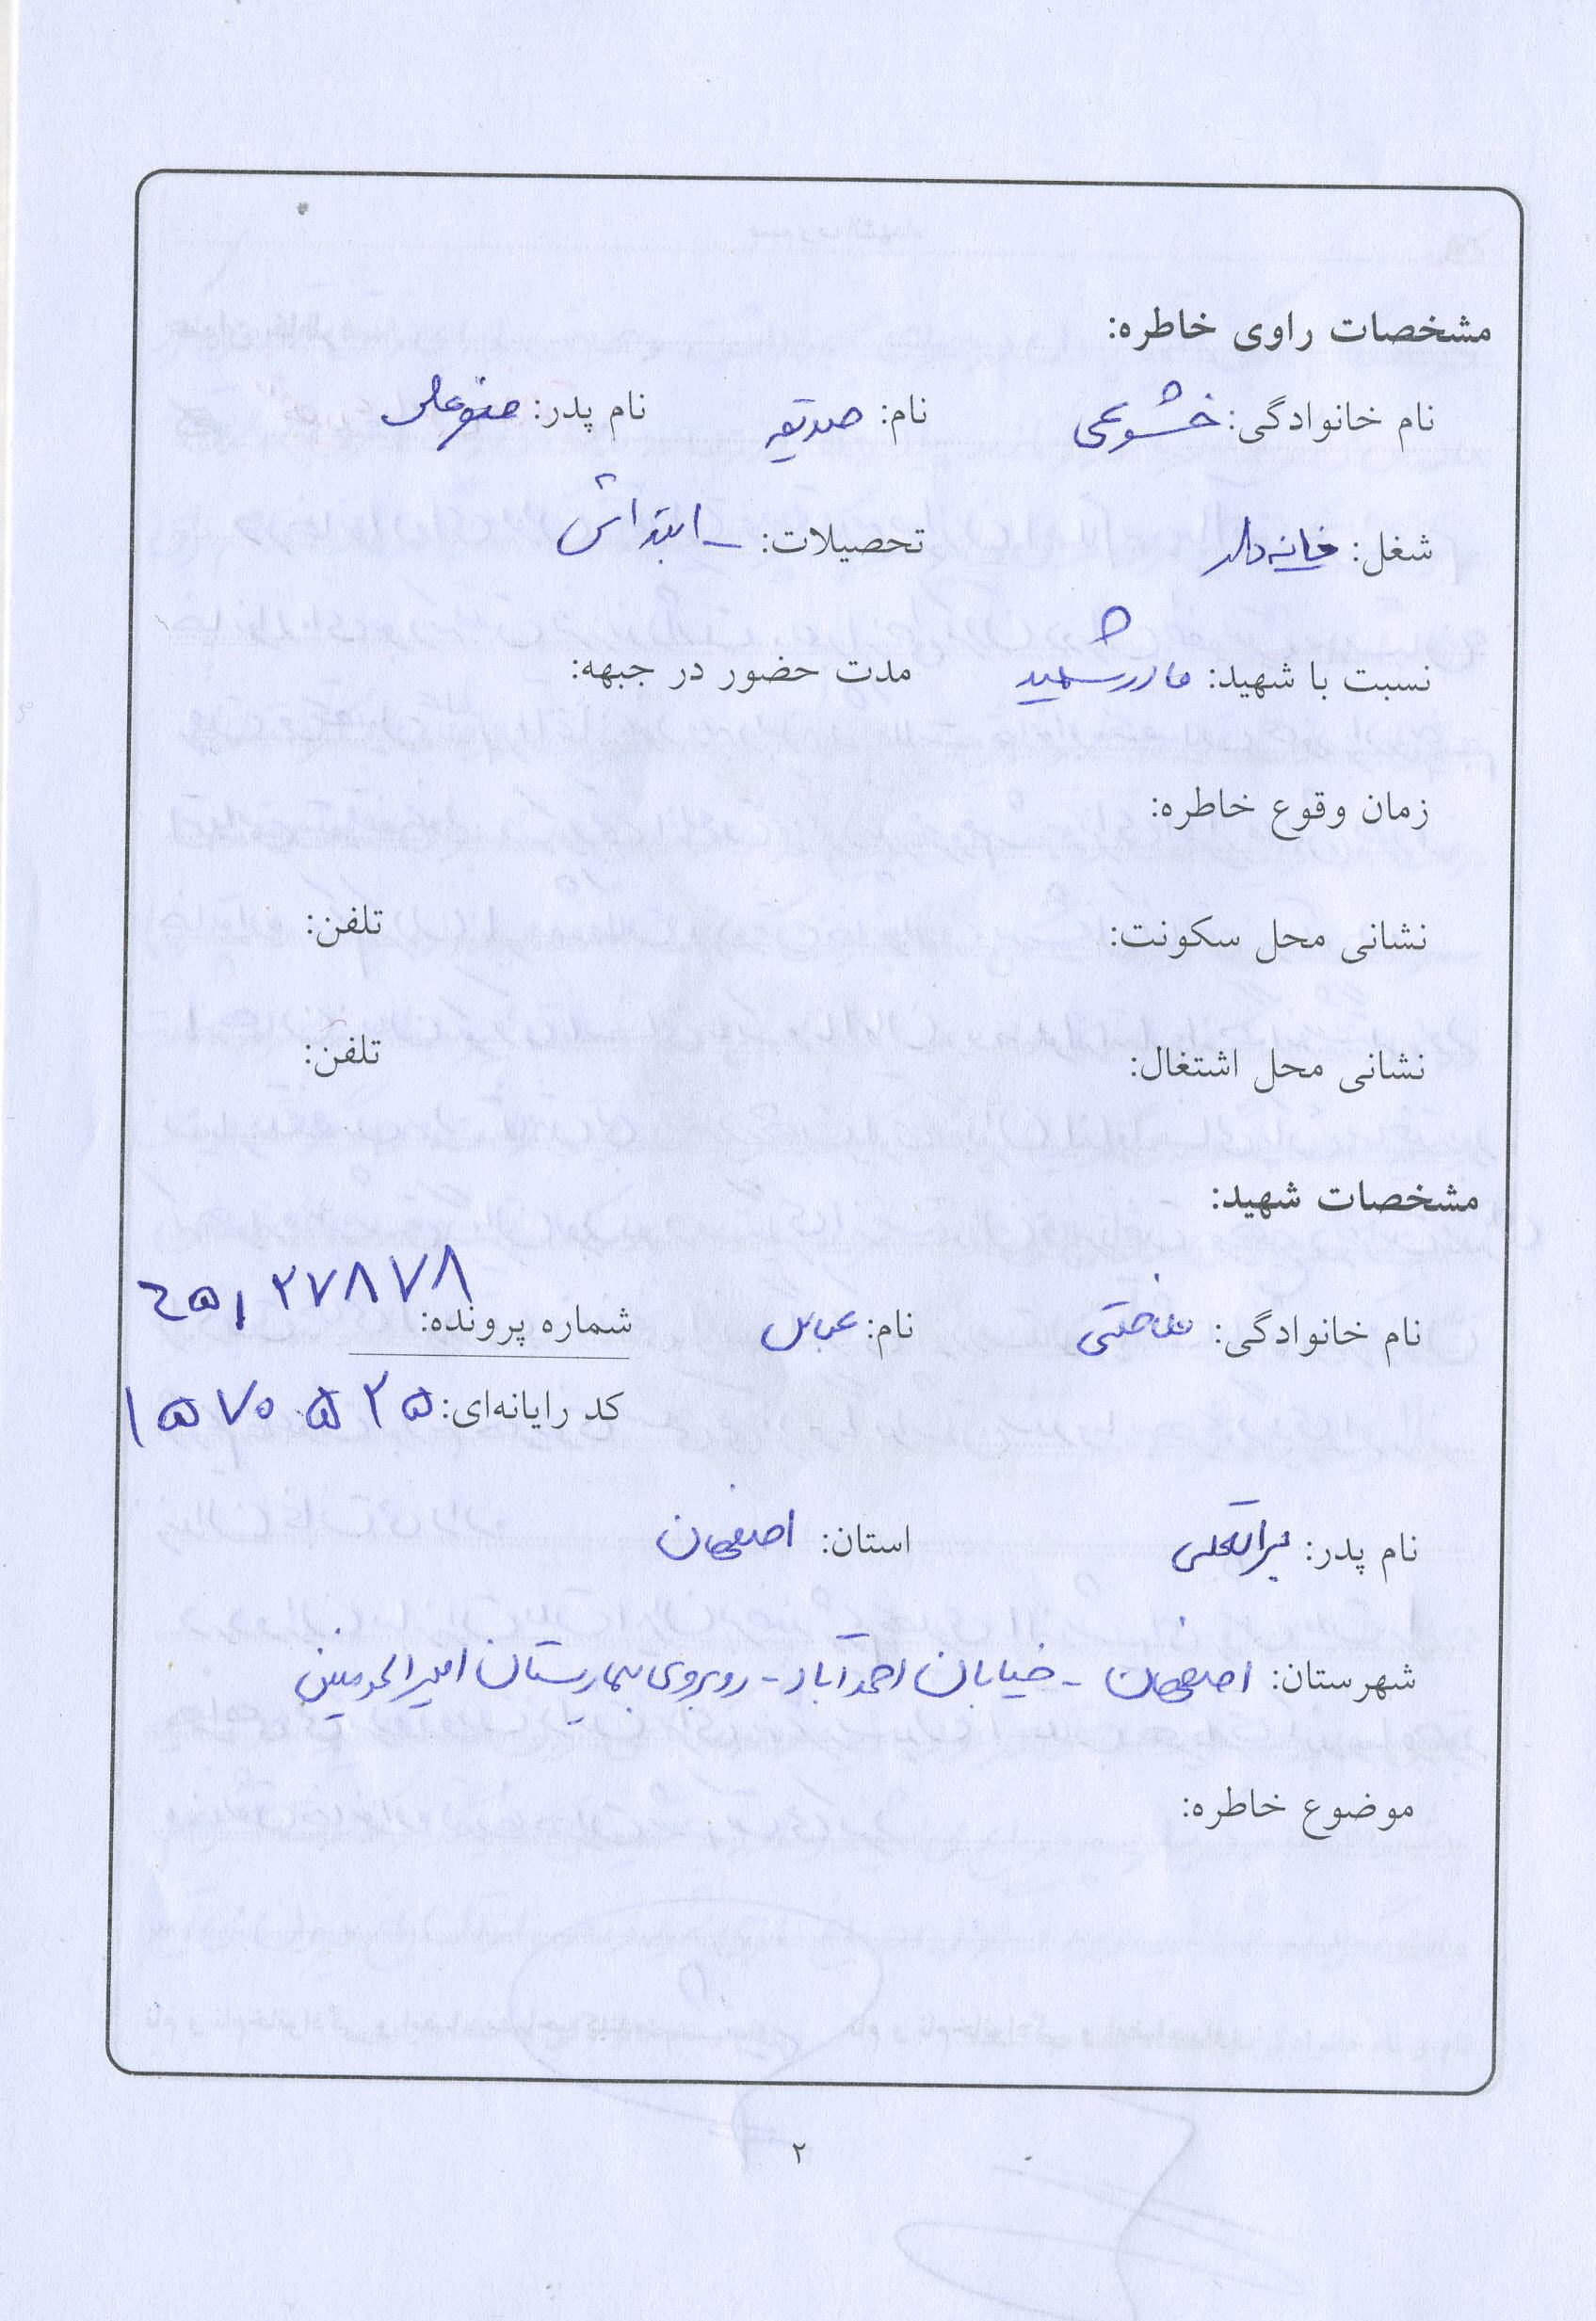 مشخصات راوی خاطره:
نام خانوادگی: خشوعی نام: صدیقه نام پدر:
شغل: خانه دار تحصیلات: ابتدائی
نسبت با شهید: مادر شهید مدت حضور در جبهه:
زمان وقوع خاطره:
نشانی محل سکونت: تلفن:
نشانی محل اشتغال: تلفن:
مشخصات شهید:
نام خانوادگی: نام: عباس شماره پرونده: ۲۷۸۷۸
کد رایانه‌ای: ۱۵۷۰۵۲۵
نام پدر: براتعلی استان: اصفهان
شهرستان: اصفهان - خیابان احمدآباد - روبروی بیمارستان امیرالمومنین
موضوع خاطره:
۲